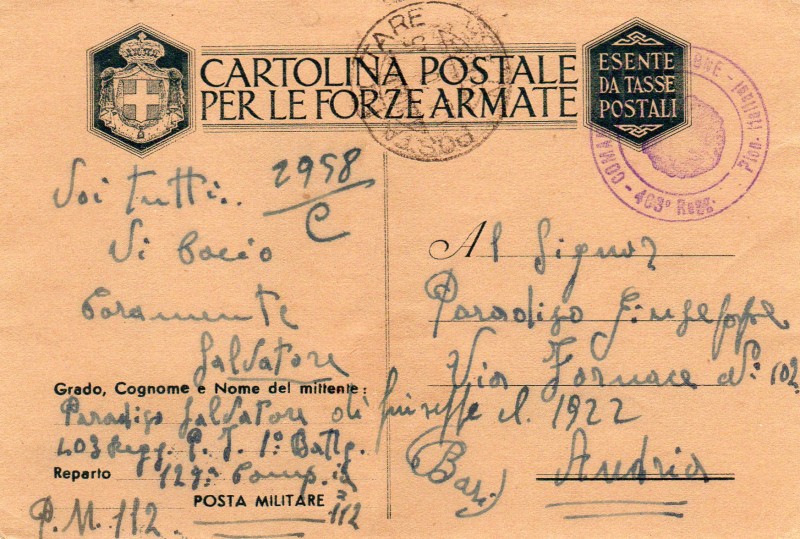 CARTOLINA POSTALE
PER LE FORZE ARMATE
ESENTE
DA TASSE
POSTALI
POSTA MILITARE
COMANDO - 403° Regg. Pion-
2958
C
Voi tutti..
Vi bacio
Caramente
Salvatore
Al Signor
Paradiso Giuseppe
Via Fornace N. 102
Andria
(Bari)
Grado, Cognome e Nome del mittente:
Paradiso Salvatore di Giuseppe cl. 1922
403 Regg. P. I. 1° Battg.
Reparto 129ª Comp.
POSTA MILITARE 112
P. M. 112